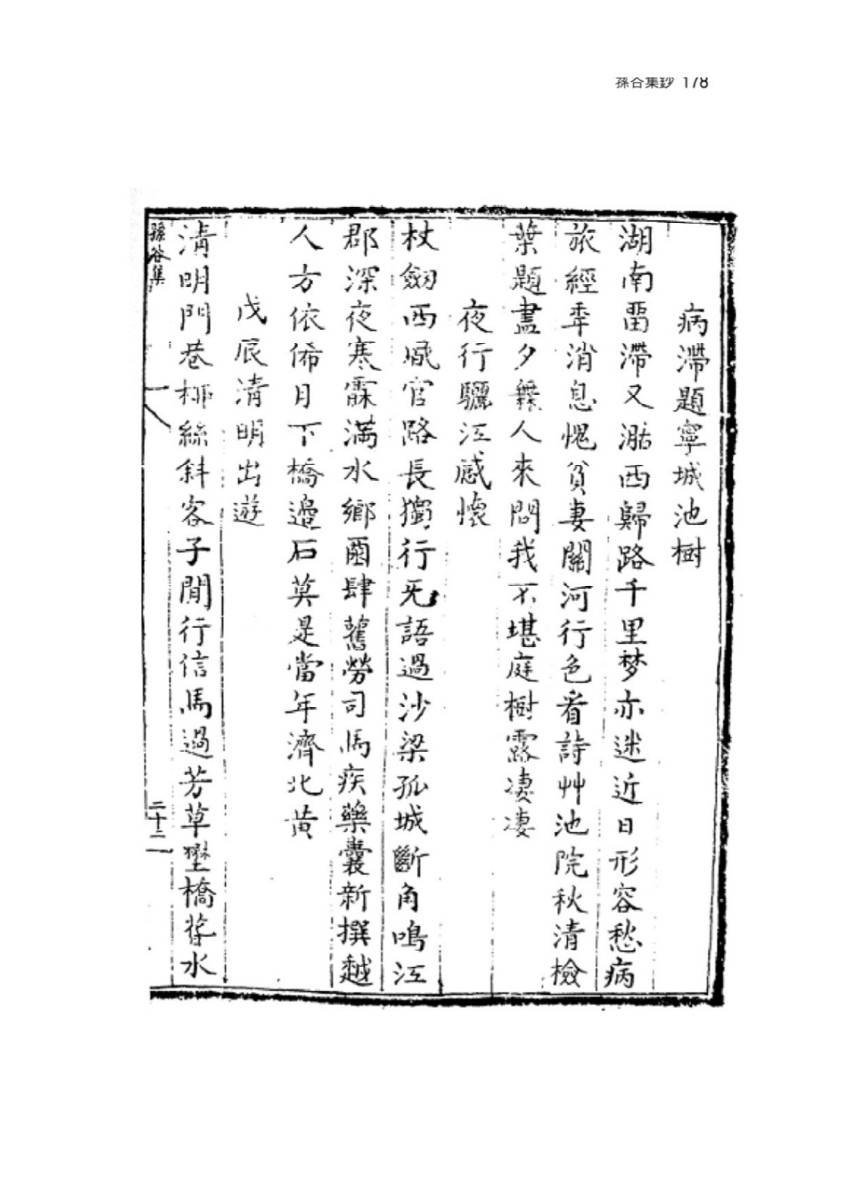 孫谷集鈔 178
病滯題寧城池樹
湖南畱滯又湖西歸路千里梦亦迷近日形容愁病
旅經年消息愧貧妻關河行色看詩艸池院秋清檢
葉題盡夕無人來問我不堪庭樹露凄凄
夜行驪江感懷
杖劒西風官路長獨行无語過沙梁孤城斷角鳴江
郡深夜寒霖滿水鄉園肆舊勞司馬疾藥囊新撰越
人方依俙月下橋邉石莫是當年濟北黄
戊辰清明出遊
清明門巷栁絲斜客子閒行信馬過芳草壄橋水
孫谷集
二十二